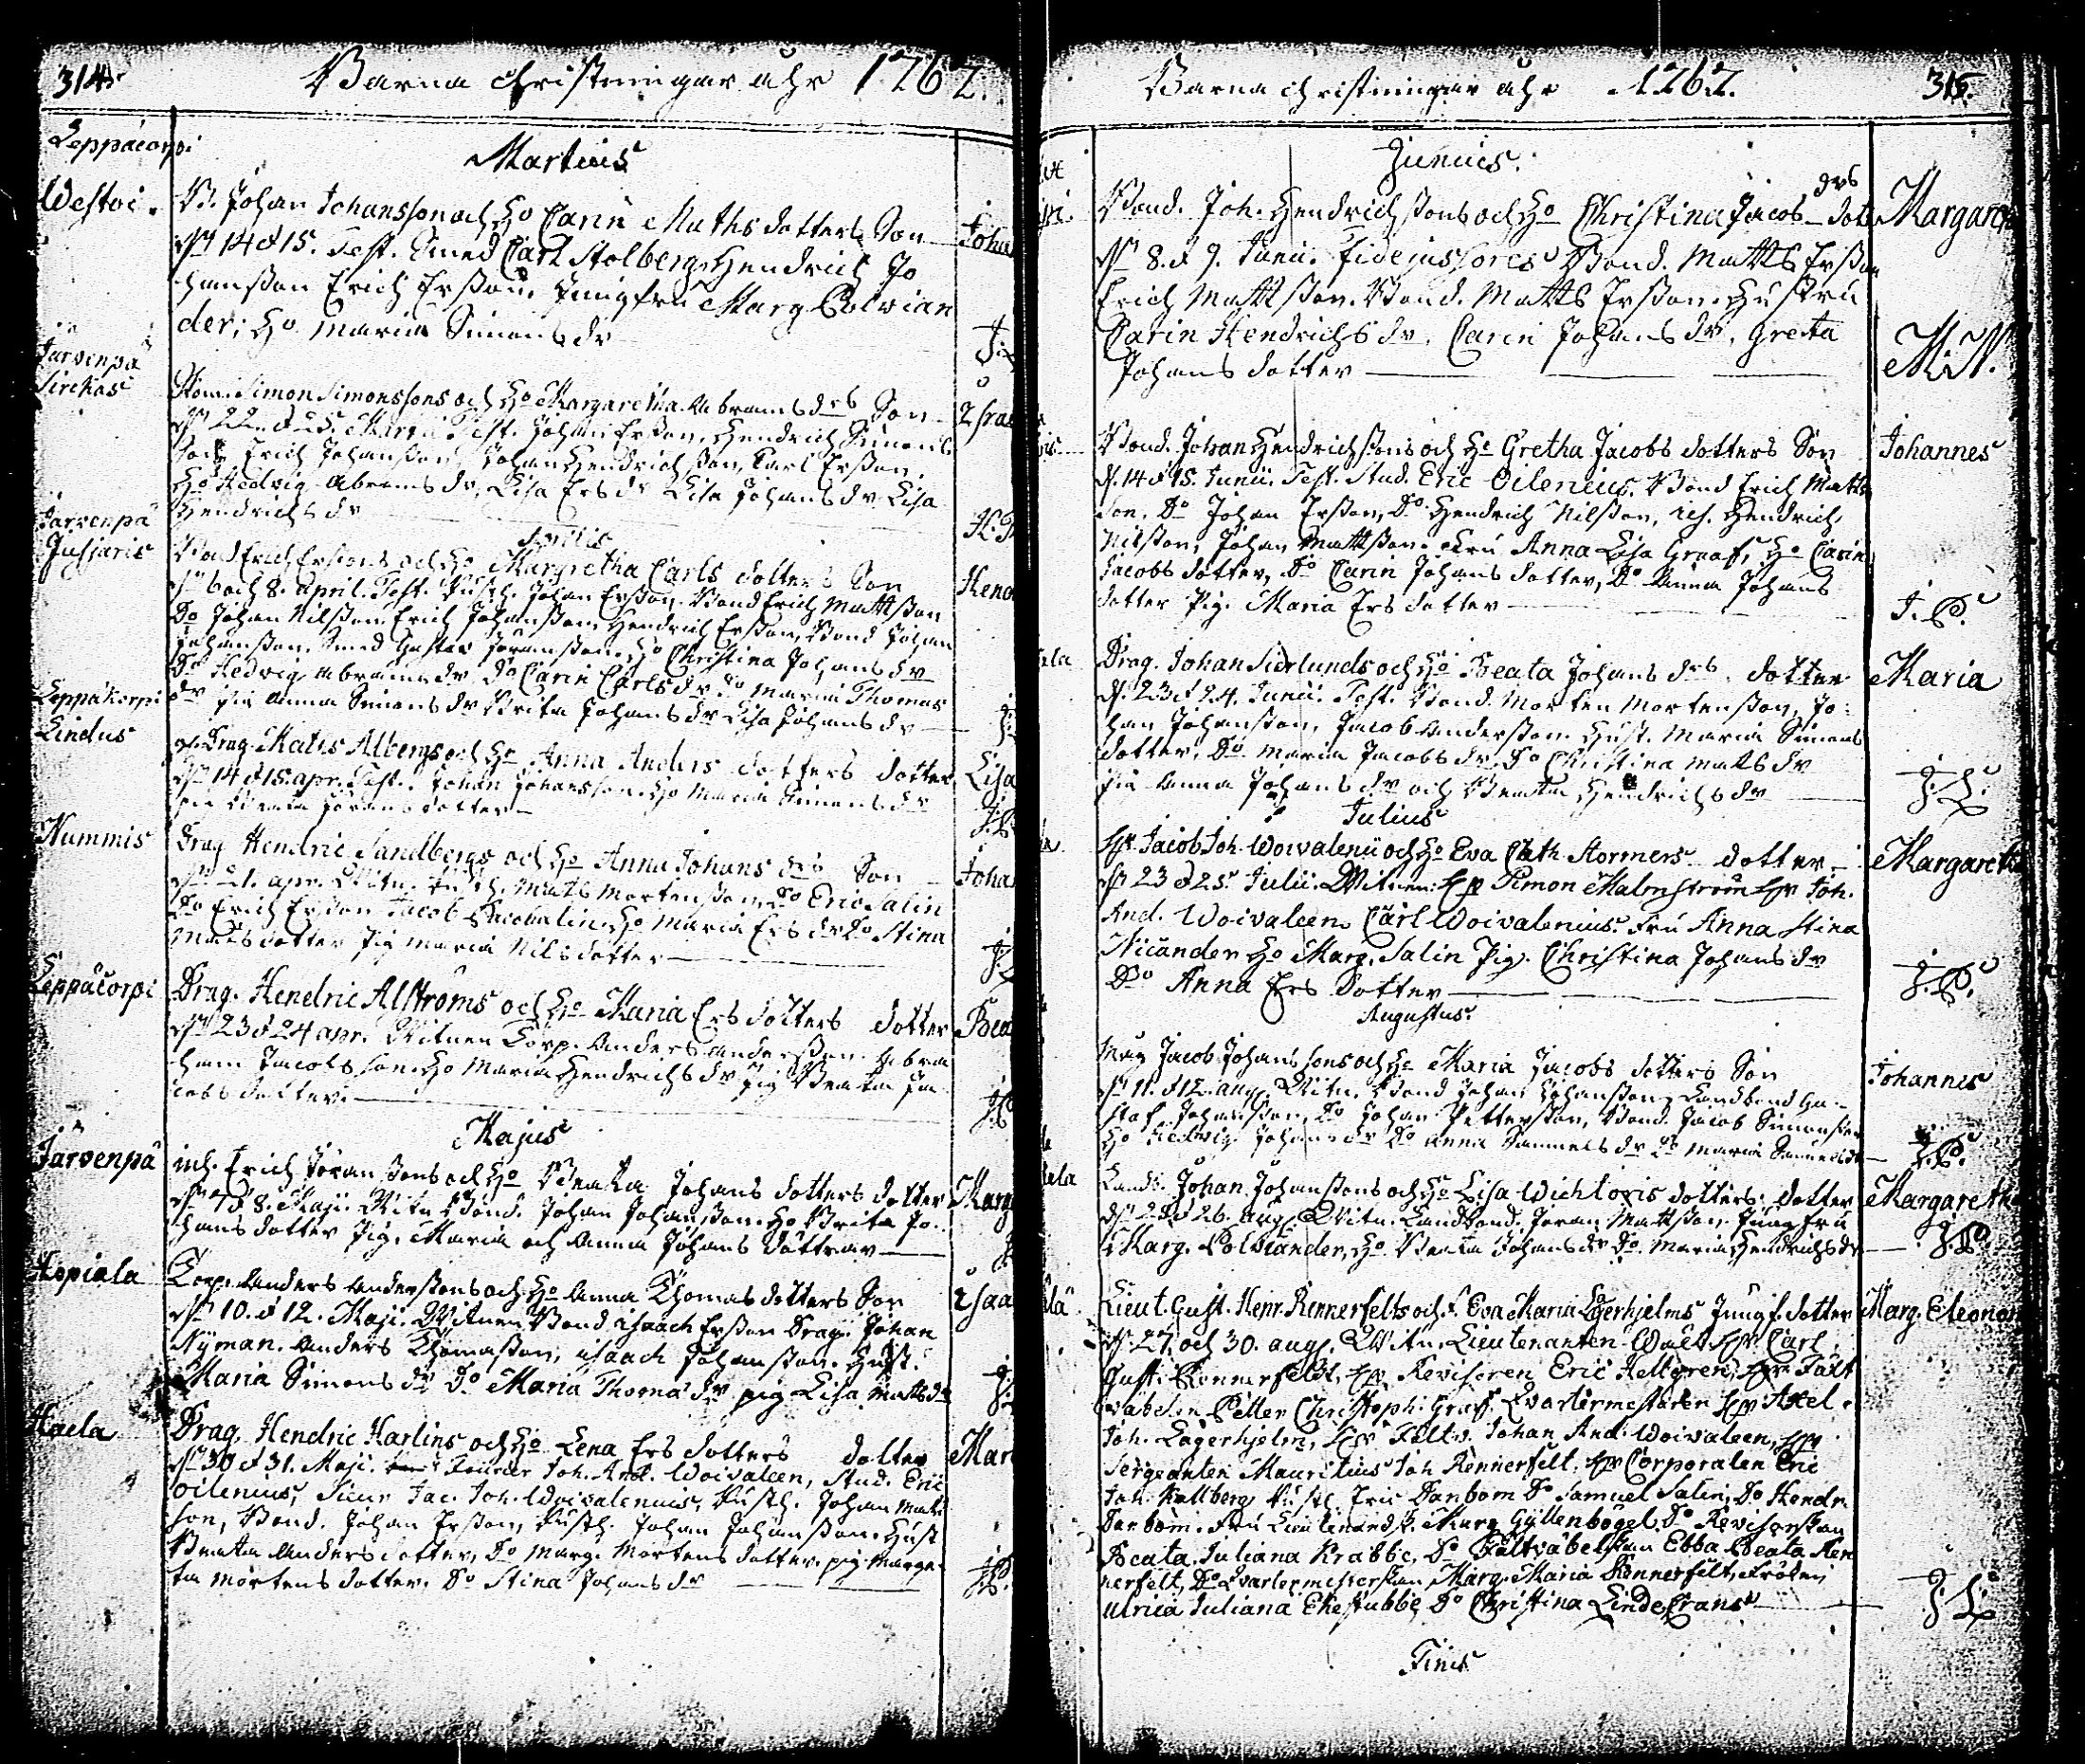 314.
Barna christningar åhr 1762.
Leppäcorpi
Martius
Westoi.
B. Johan Johanssons och H:o Carin Mathsdotters Son Joha
14 d 15. Test. Smed Carl Stolberg, Hendrich Jo
hansson Erich Ersson, Jungfru Marg. Polvian
der, H:o Maria Simonsdr
Järvenpä
Sirekas
Simon Simonssons och H:o Margaretha Abramsdrs Son Isra
22. d 25. Martii Test. Johan Ersson, Hendrich Simons
son Erich Johansson, Johan Hendrichsson, Carl Ersson,
H:o Hedvig Abramsdr, Lisa Ersdr Lisa Johansdr Lisa
Hendrichsdr
Järvenpä
Jusjaris
Aprilis
Bond Erich Erssons och H:o Margretha Carlsdotters Son Hend
6 och 8. April. Test. Rusth. Johan Ersson, Bond Erich Mattsson
D:o Johan Nilsson Erich Johansson, Hendrich Ersson, Bond Johan
Johansson, Smed Gustav Joransson, H:o Christina Johansdr
D:o Hedvig Abramsdr, D:o Carin Carlsdr D:o Maria Thomas
dr pig Anna Simonsdr Brita Johansdr Lisa Johansdr
Leppäkorpi
Lindus
Drag. Matts Albergs och H:o Anna Anders dotters dotter Lisa
14 d 15. apr. Test. Johan Johansson. H:o Maria Simonsdr
pig Beata Joransdotter
Nummis
Drag Hendric Sandbergs och H:o Anna Johansdrs Son Joha
21. apr. Witn. Rusth. Mats Mortensson, D:o Eric Salin
D:o Erich Ersson Jacob Jacobalin. H:o Maria Ersdr D:o Stina
Matsdotter Pig Maria Nilsdotter
Leppäcorpi
Drag. Hendric Alströms och H:o Maria Ersdotters dotter Bea
23 d 24 apr. Witnen Corp. Anders Andersson Abra
ham Jacobsson. H:o Maria Hendrichsdr Pig Beata Ja
cobsdotter
Majus
Järvenpä
inh. Erich Joranssons och H:o Beata Johansdotters dotter Marg
7 d 8. Maji. Witn Bond. Johan Johansson. H:o Brita Jo
hansdotter Pig. Maria och Anna Johansdöttrar
Hopiala
Corp. Anders Anderssons och H:o Anna Thomasdotters Son Isaa
10. d 12. Maji. Witnen Bond Isaach Ersson Drag. Johan
Nyman. Anders Thomasson, Isaach Johansson. Hust.
Maria Simonsdr D:o Maria Thomadr pig Lisa Mattsdr
Haela
Drag. Hendric Harlins och H:o Lena Ersdotters dotter Mar
30 d 31. Maji. Fourier Joh. And. Woivaleen, Stud. Eric
Oilenius, Sieur Jac. Joh. Woivalenius, Rusth. Johan Mats
son, Bond. Johan Ersson, Rusth. Johan Johansson. Hust
Beata Andersdotter, D:o Marg. Mortensdotter. pig Marge
ta Mörtensdotter. D:o Stina Johansdr
Barna christningar åhr 1762.
315.
Junius.
Bond. Joh. Hendrichssons och H:o Christina Jacobdrs dott Margare
8. d 9. Junii. Fidejussores Bond. Matts Ersson
Erich Mattsson. Bond. Matts Ersson. Hustru
Carin Hendrichsdr, Carin Johansdr, Greta
Johansdotter
M.N.
Bond. Johan Hendrichssons och H:o Gretha Jacobsdotters Son Johannes
d. 14 d 15. Junii. Test. Stud. Eric Oilenius. Bond Erich Matts
son. D:o Johan Ersson, D:o Hendrich Nilsson, Hendrich
Nilsson, Johan Mattsson. Fru Anna Lisa Graaf, H:o Carin
Jacobsdotter, D:o Carin Johansdotter, D:o Anna Johans
dotter Pig. Maria Ersdotter
J.P.
Drag. Johan Sierlunds och H:o Beata Johansdrs. dotter Maria
d. 23 d 24. Junii. Test. Bond. Morten Mortensson, Jo
han Johansson, Jacob Andersson Hust. Maria Simons
dotter. D:o Maria Jacobsdr, D:o Christina Matsdr
Pig Anna Johansdr och Beata Hendrichsdr
Julius
Hr Jacob Joh. Woivalenii och H:o Eva Cath. Stormers dotter Margareth
23 d 25. Julii. Witnen. Hr Simon Malmstrom Hr Joh.
And. Woivaleen Carl Woivalenius. Fru Anna Stina
Nicander H:o Marg. Salin Pig. Christina Johansdr
D:o Anna Ersdotter
Augustus.
Jacob Johanssons och H:o Maria Jacobsdotters Son Johannes
11. d 12. aug. Witn. Bond Johan Johansson, Landbond Gu
staf Johansson, D:o Johan Pettersson, Bond. Jacob Simonsson
H:o Hedvig Johansdr D:o Anna Samuelsdr D:o Maria Samuelsdr
Landb. Johan Johanssons och H:o Lisa Wichtorisdotters dotter Margaretha
26. aug. Witn. Landbond. Joran Mattsson. Jungfru
Marg. Polviander, H:o Beata Johansdr D:o Maria Hendrichsdr
Lieut. Gust. Henr. Rennerfelts och F. Eva Maria Lagerhjelms Jungf. dotter Marg. Eleonor
27. och 30. aug. Witn. Lieutenanten Hr Carl
Gust. Rennerfeldt, Hr Revisoren Eric Hellgren, Hr Falt
väbelen Petter Christoph. Graf. Qvartermestaren Hr Axel
Joh. Lagerhjelm, Hr Faltv. Johan And. Woivaleen, Hr
Sergeanten Mauritius Joh Rennerfelt, Hr Corporalen Eric
Joh. Kallberg Rusth. Eric Danbom D:o Samuel Salin, D:o Hendr
Danbom. Fru Lieutenandsk. Marg Gyllenbögel. D:o Revisorskan
Beata Juliana Krabbe, D:o Fältväbelskan Ebba Beata Ren
nerfelt, D:o Qvartermesterskan Marg. Maria Rennerfelt, Fröken
Ulrica Juliana Ekestubbe D:o Christina Lindecrans
Finis